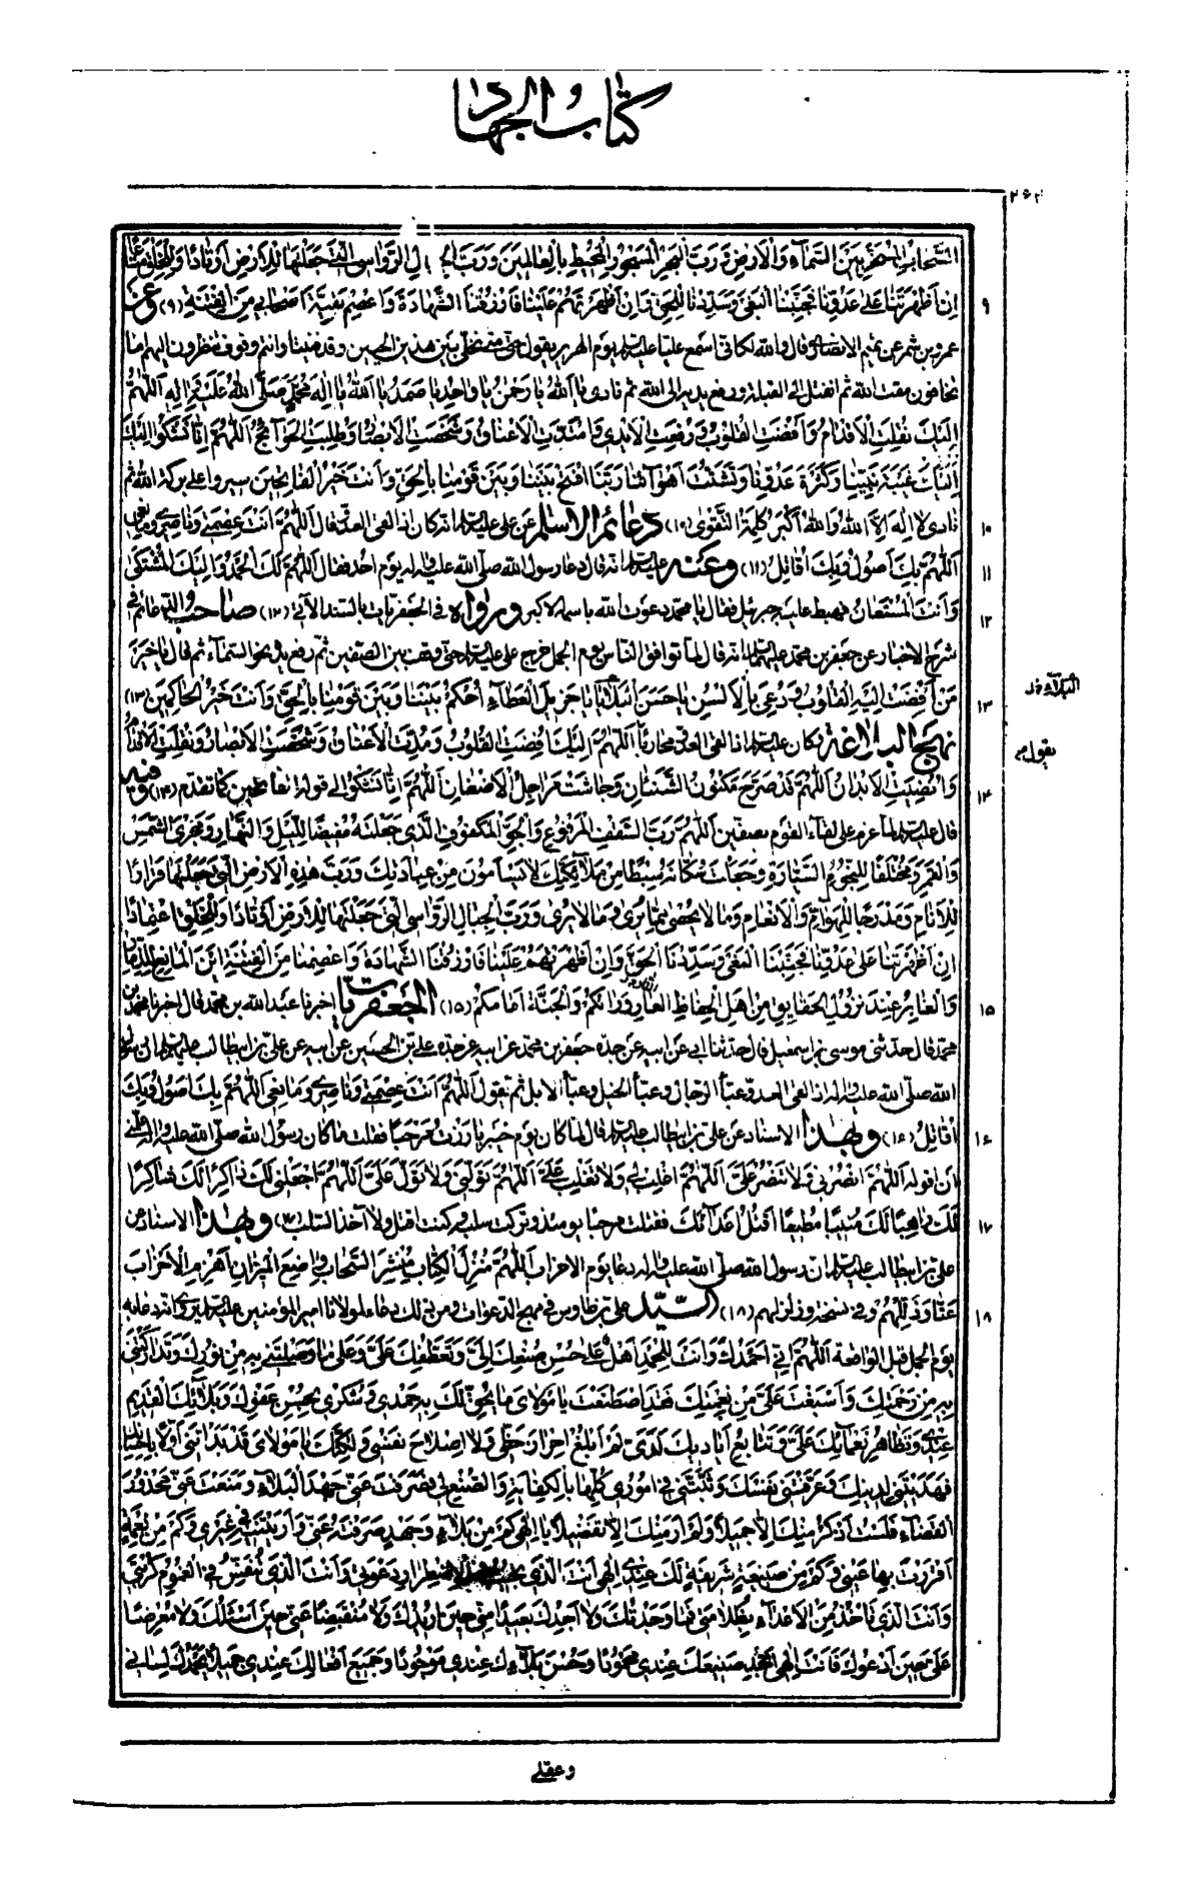 كتاب الجهاد
٢٦٢
السَّحابِ المُسَخَّرِ بَيْنَ السَّماءِ وَالأرْضِ وَرَبَّ البَحْرِ المَسْجُورِ المُحيطِ بِالعالَمينَ وَرَبَّ الجِبالِ الرَّواسِي الَّتي جَعَلْتَها لِلأرْضِ أوْتادًا وَلِلخَلْقِ مَتاعًا
إنْ أظْهَرْتَنا عَلى عَدُوِّنا فَجَنِّبْنا البَغْيَ وَسَدِّدْنا لِلحَقِّ وَإنْ أظْهَرْتَهُمْ عَلَيْنا فَارْزُقْنا الشَّهادَةَ وَاعْصِمْ بَقِيَّةَ أصْحابي مِنَ الفِتْنَةِ (٩) وعن
٩
عمرو بن شمر عن تميم الانصاري قال والله لكاني اسمع عليا عليه السلام يوم الهرير يقول حتى متى نخلي بين هذين الحيين وقد فنينا وانتم وقوف تنظرون اليهم اما
تخافون مقت الله ثم انفتل الى القبلة ورفع يديه الى الله ثم نادى يا اَللهُ يا رَحْمنُ يا واحِدُ يا صَمَدُ يا اَللهُ يا اِلهَ مُحَمَّدٍ صَلَّى اللهُ عَلَيْهِ وَالِهِ اَللّهُمَّ
اِلَيْكَ نُقِلَتِ الاَقْدامُ وَاَفْضَتِ القُلُوبُ وَرُفِعَتِ الاَيْدي وَامْتَدَّتِ الاَعْناقُ وَشَخَصَتِ الاَبْصارُ وَطُلِبَتِ الحَوآئِجُ اَللّهُمَّ اِنّا نَشْكُو اِلَيْكَ
غَيْبَةَ نَبِيِّنا وَكَثْرَةَ عَدُوِّنا وَتَشَتُّتَ اَهْوآئِنا رَبَّنَا افْتَحْ بَيْنَنا وَبَيْنَ قَوْمِنا بِالحَقِّ وَاَنْتَ خَيْرُ الفاتِحينَ سيروا على بركة الله ثم
نادى لا اِلهَ اِلاَّ اللهُ وَاللهُ اَكْبَرُ كَلِمَةُ التَّقْوى (١٠) دعائم الاسلام عن علي عليه السلام انه كان اذا لقي العدو قال اَللّهُمَّ اَنْتَ عِصْمَتي وَناصِري وَمُعيني
١٠
اَللّهُمَّ بِكَ اَصُولُ وَبِكَ اُقاتِلُ (١١) وعنه عليه السلام انه قال دعا رسول الله صلى الله عليه واله يوم احد فقال اَللّهُمَّ لَكَ الحَمْدُ وَاِلَيْكَ المُشْتَكى
١١
وَاَنْتَ المُسْتَعانُ فهبط عليه جبرئيل فقال يا محمد دعوت الله باسمه الاكبر ورواه في الجعفريات بالسند الاتي (١٢) صاحب الدعائم في
١٢
شرح الاخبار عن جعفر بن محمد عليهما السلام انه قال لما توافق الناس يوم الجمل خرج علي عليه السلام حتى وقف بين الصفين ثم رفع يده نحو السماء ثم قال يا خَيْرَ
مَنْ اَفْضَتْ اِلَيْهِ القُلُوبُ وَدُعِيَ بِالاَلْسُنِ يا حَسَنَ البَلايا يا جَزيلَ العَطاءِ اُحْكُمْ بَيْنَنا وَبَيْنَ قَوْمِنا بِالحَقِّ وَاَنْتَ خَيْرُ الحاكِمينَ (١٣)
١٣
البلاء خ
نهج البلاغة كان عليه السلام اذا لقي العدو محاربا اَللّهُمَّ اِلَيْكَ اَفْضَتِ القُلُوبُ وَمُدَّتِ الاَعْناقُ وَشَخَصَتِ الاَبْصارُ وَنُقِلَتِ الاَقْدامُ
يقول
وَاُنْضِيَتِ الاَبْدانُ اَللّهُمَّ قَدْ صَرَّحَ مَكْنُونُ الشَّنَئانِ وَجاشَتْ مَراجِلُ الاَضْغانِ اَللّهُمَّ اِنّا نَشْكُو الى قوله الفاتحين كما تقدم (١٤) وفيه
١٤
قال عليه السلام لما عزم على لقاء القوم بصفين اَللّهُمَّ رَبَّ السَّقْفِ المَرْفُوعِ وَالجَوِّ المَكْفُوفِ الَّذي جَعَلْتَهُ مَغيضًا لِلَّيْلِ وَالنَّهارِ وَمَجْرىً لِلشَّمْسِ
وَالقَمَرِ وَمُخْتَلَفًا لِلنُّجُومِ السَّيّارَةِ وَجَعَلْتَ سُكّانَهُ سِبْطًا مِنْ مَلائِكَتِكَ لا يَسْاَمُونَ مِنْ عِبادَتِكَ وَرَبَّ هذِهِ الاَرْضِ الَّتي جَعَلْتَها قَرارًا
لِلاَنامِ وَمَدْرَجًا لِلهَوآمِّ وَالاَنْعامِ وَما لا يُحْصى مِمّا يُرى وَما لا يُرى وَرَبَّ الجِبالِ الرَّواسِي الَّتي جَعَلْتَها لِلاَرْضِ اَوْتادًا وَلِلخَلْقِ اعْتِمادًا
اِنْ اَظْهَرْتَنا عَلى عَدُوِّنا فَجَنِّبْنَا البَغْيَ وَسَدِّدْنا لِلحَقِّ وَاِنْ اَظْهَرْتَهُمْ عَلَيْنا فَارْزُقْنَا الشَّهادَةَ وَاعْصِمْنا مِنَ الفِتْنَةِ اَيْنَ المانِعُ لِلذِّمارِ
وَالغايِرُ عِنْدَ نُزُولِ الحَقايِقِ مِنْ اَهْلِ الحِفاظِ العارُ وَرائَكُمْ وَالجَنَّةُ اَمامَكُمْ (١٥) الجعفريات اخبرنا عبد الله بن محمد قال اخبرنا محمد بن
١٥
محمد قال حدثني موسى بن اسمعيل قال حدثنا ابي عن ابيه عن جده جعفر بن محمد عن ابيه عن جده علي بن الحسين عن ابيه عن علي بن ابيطالب عليهم السلام ان رسول
الله صلى الله عليه واله اذا لقي العدو عبأ الرجال وعبأ الخيل وعبأ الابل ثم يقول اَللّهُمَّ اَنْتَ عِصْمَتي وَناصِري وَمانِعي اَللّهُمَّ بِكَ اَصُولُ وَبِكَ
اُقاتِلُ (١٦) وبهذا الاسناد عن علي بن ابيطالب عليه السلام قال لما كان يوم خيبر بارزت مرحبا فقلت ما كان رسول الله صلى الله عليه واله علمني
١٦
ان اقوله اَللّهُمَّ انْصُرْني وَلا تَنْصُرْ عَلَيَّ اَللّهُمَّ اغْلِبْ لي وَلا تَغْلِبْ عَلَيَّ اَللّهُمَّ تَوَلَّني وَلا تَوَلَّ عَلَيَّ اَللّهُمَّ اجْعَلْني لَكَ ذاكِرًا لَكَ شاكِرًا
لَكَ راهِبًا لَكَ مُنيبًا مُطيعًا اَقْتُلُ اَعْدآئَكَ فقتلت مرحبا يومئذ وتركت سلبه وكنت اقتل ولا آخذ السلب (١٧) وبهذا الاسناد عن
١٧
علي بن ابيطالب عليه السلام ان رسول الله صلى الله عليه واله دعا يوم الاحزاب اَللّهُمَّ مُنْزِلَ الكِتابِ مُنْشِرَ السَّحابِ واضِعَ الميزانِ اَهْزِمِ الاَحْزابَ
عَنّا وَذَلِّلْهُمْ وفي نسخة وزلزلهم (١٨) السيد علي بن طاوس في مهج الدعوات ومن ذلك دعاء لمولانا امير المؤمنين عليه السلام روى انه دعا به
١٨
يوم الجمل قبل الواقعة اَللّهُمَّ اِنّي اَحْمَدُكَ وَاَنْتَ لِلحَمْدِ اَهْلٌ عَلى حُسْنِ صُنْعِكَ اِلَيَّ وَتَعَطُّفِكَ عَلَيَّ وَعَلى ما وَصَلْتَني بِهِ مِنْ نُورِكَ وَتَدارَكْتَني
بِهِ مِنْ رَحْمَتِكَ وَاَسْبَغْتَ عَلَيَّ مِنْ نِعْمَتِكَ فَقَدِ اصْطَنَعْتَ يا مَوْلايَ ما يَحِقُّ لَكَ بِهِ حَمْدي وَشُكْري بِحُسْنِ عَفْوِكَ وَبَلائِكَ القَديمِ
عِنْدي وَتَظاهُرِ نَعْمآئِكَ عَلَيَّ وَتَتابُعِ اَياديكَ لَدَيَّ لَمْ اَبْلُغْ اِحْرازَ حَظّي وَلا اِصْلاحَ نَفْسي وَلكِنَّكَ يا مَوْلايَ قَدْ بَدَاْتَني اَوَّلاً بِاِحْسانِكَ
فَهَدَيْتَني لِدينِكَ وَعَرَّفْتَني نَفْسَكَ وَثَبَّتَّني في اُمُوري كُلِّها بِالكِفايَةِ وَالصُّنْعِ لي فَصَرَفْتَ عَنّي جَهْدَ البَلاءِ وَمَنَعْتَ عَنّي مَحْذُورَ
القَضاءِ فَلَسْتُ اَذْكُرُ مِنْكَ اِلاّ جَميلاً وَلَمْ اَرَ مِنْكَ اِلاّ تَفْضيلاً يا اِلهي كَمْ مِنْ بَلاءٍ وَجَهْدٍ صَرَفْتَهُ عَنّي وَاَرَيْتَنيهِ في غَيْري وَكَمْ مِنْ نِعْمَةٍ
اَقْرَرْتَ بِها عَيْني وَكَمْ مِنْ صَنيعَةٍ شَريفَةٍ لَكَ عِنْدي اِلهي اَنْتَ الَّذي تُجيبُ عِنْدَ الاِضْطِرارِ دَعْوَتي وَاَنْتَ الَّذي تُنَفِّسُ فِي الغُمُومِ كُرْبَتي
وَاَنْتَ الَّذي تَاْخُذُ مِنَ الاَعْدآءِ بِظُلامَتي فَما وَجَدْتُكَ وَلا اَجِدُكَ بَعيدًا مِنّي حينَ اُريدُكَ وَلا مُنْقَبِضًا عَنّي حينَ اَسْئَلُكَ وَلا مُعْرِضًا
عَنّي حينَ اَدْعُوكَ فَاَنْتَ اِلهي اَجِدُ صَنيعَكَ عِنْدي مَحْمُودًا وَحُسْنَ بَلاءِكَ عِنْدي مَوْجُودًا وَجَميعَ اَفْعالِكَ عِنْدي جَميلاً يَحْمَدُكَ لِساني
وعقلي